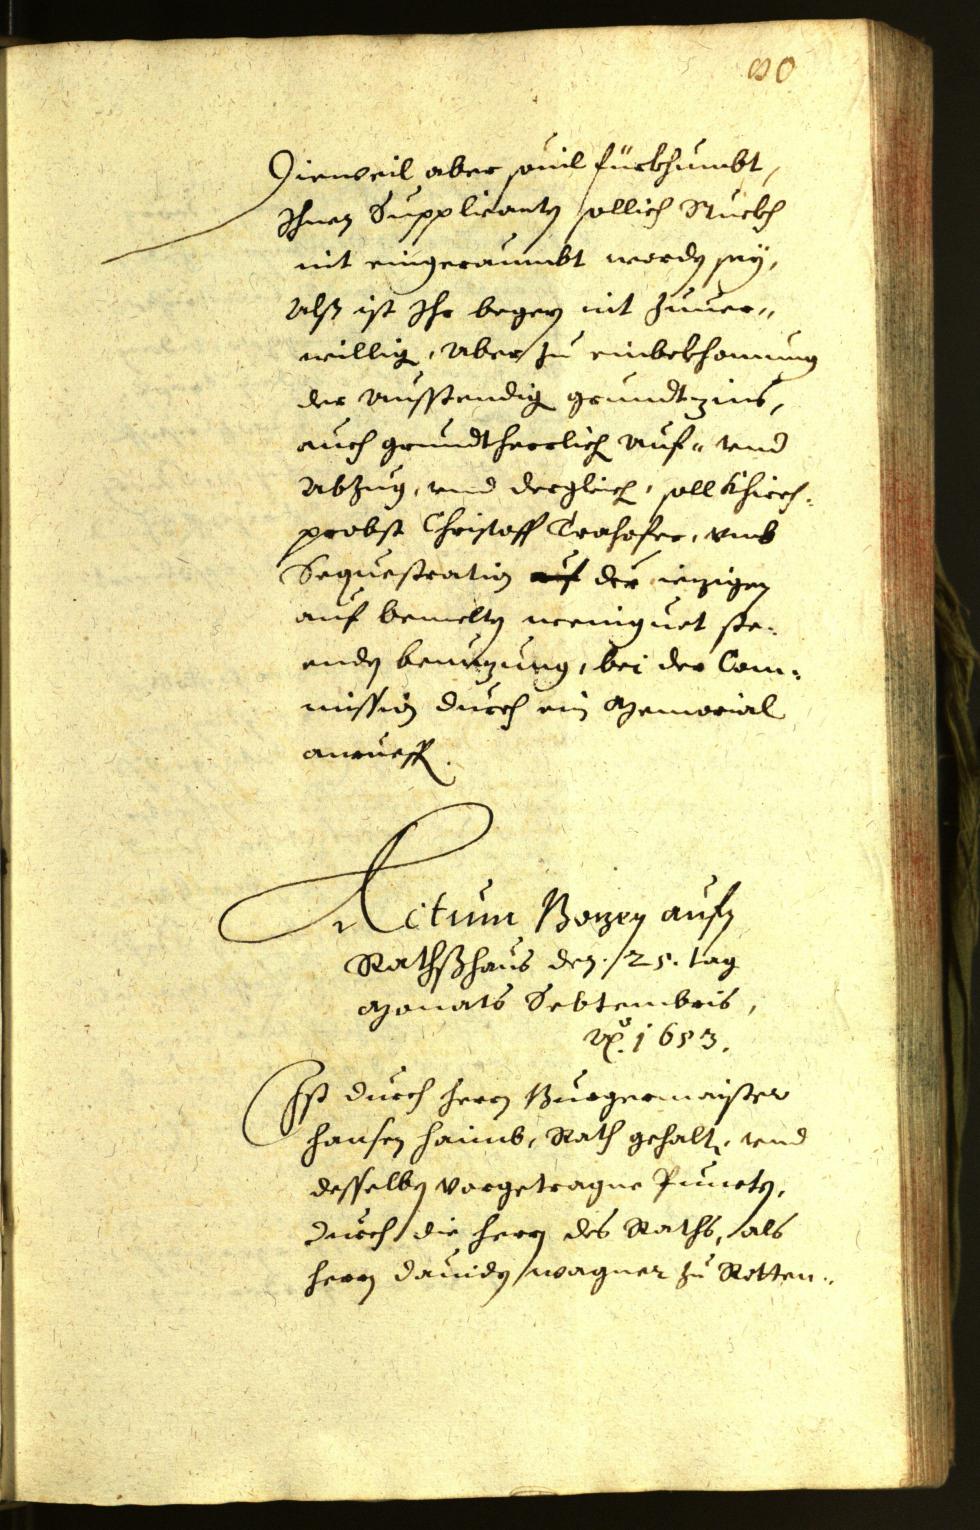 80
Dieweil aber souil fürkhumbt,
Ihnen Supplicanten sollich Stuckh
nit eingeraumbt worden sey,
Alß ist Ihr begern nit zuuer„
willigen, Aber zu einbekhomung
der Ausstendigen grundtzins,
auch grundtherrlichen Auf- vnd
Abzug, vnd dergleichen, soll Khirch„
probst Christoff Trahofer, vmb
Sequestration der ieztigen
auf bemelten weinguet ste„
enden benutzung, bei der Com„
mission durch ein Memorial
anrueffen.
Actum Bozen aufm
Rathßhaus den 25. tag
Monats Septembris,
Ao. 1653.
Ist durch herrn Burgermaister
hansen haimb, Rath gehalten, vnd
desselben vorgetragne Puncten,
durch die herrn des Raths, als
herrn Dauiden Wagner zu Rotten„